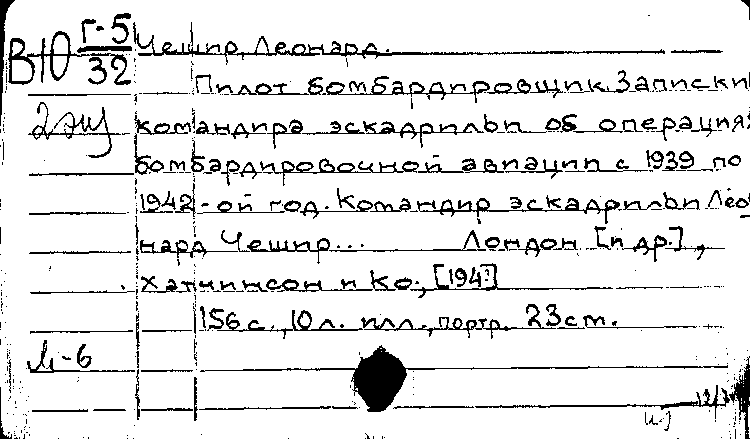 В10 Г-5/32
Чешир, Леонард.
Пилот бомбардировщик. Записки
2 экз
командира эскадрильи об операциях
бомбардировочной авиации с 1939 по
1942-ой год. Командир эскадрильи Лео
нард Чешир... Лондон [и др.],
Хатчинсон и Ко., [194?]
156 с., 10 л. илл., портр. 23 см.
М-6